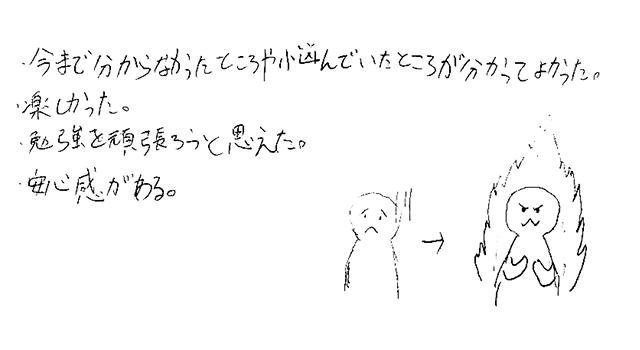 ・今まで分からなかったところや悩んでいたところが分かってよかった。
・楽しかった。
・勉強を頑張ろうと思えた。
・安心感がある。